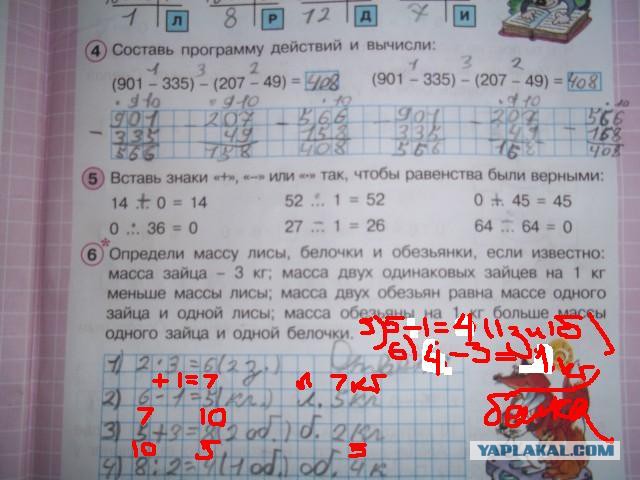 1 Л 8 Р 12 Д 7 И
4 Составь программу действий и вычисли:
1 3 2 1 3 2
(901 – 335) – (207 – 49) = 408 (901 – 335) – (207 – 49) = 408
• 9 10 • 9 10 • 10 • 9 10 • 10
901 207 566 901 207 566
– 335 – 49 – 158 – 335 – 49 – 158
566 158 408 566 158 408
5 Вставь знаки «+», «–» или «·» так, чтобы равенства были верными:
14 + 0 = 14 52 · 1 = 52 0 + 45 = 45
0 · 36 = 0 27 – 1 = 26 64 – 64 = 0
6* Определи массу лисы, белочки и обезьянки, если известно:
масса зайца – 3 кг; масса двух одинаковых зайцев на 1 кг
меньше массы лисы; масса двух обезьян равна массе одного
зайца и одной лисы; масса обезьяны на 1 кг больше массы
одного зайца и одной белочки.
5) 5–1=4 (1з и 1б)
6) 4–3=1 кг
1) 2·3=6(2з.)
+1=7 л 7кг
белка
2) 6–1=5(кг.) л. 5кг
7 10
3) 5+3=8(2об.) б. 2кг
10 5 5
4) 8:2=4(1об) об. 4к
YAPLAKAL.COM